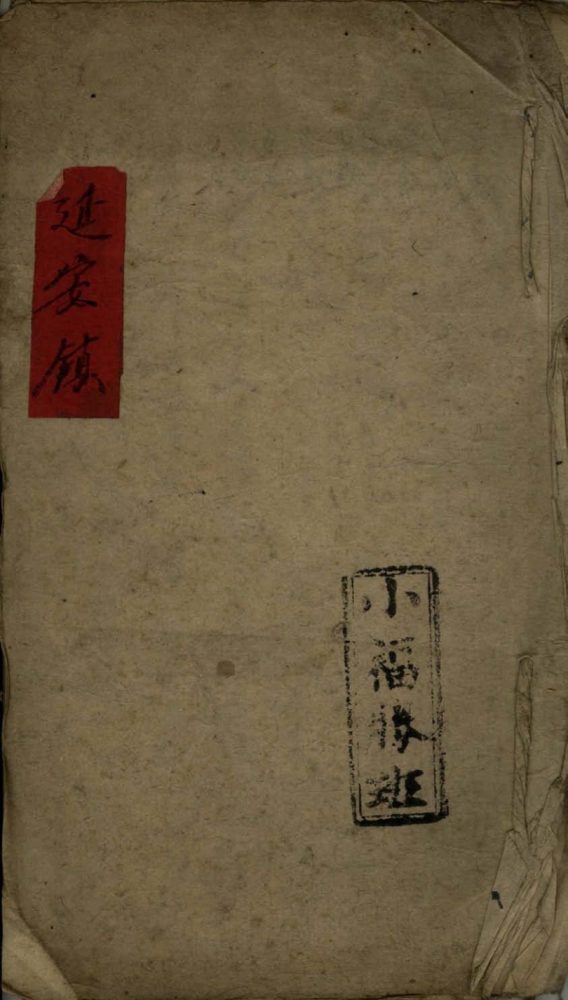 延安鎮
小福勝班